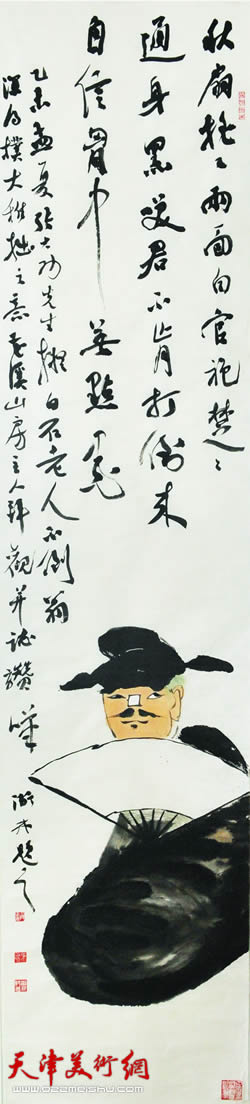 秋扇摇摇两面白官袍楚楚
通身黑笑君不肯打倒来
自信胸中无点墨
乙未孟夏
先生拟白石老人不倒翁
深得朴大稚拙之意
溪山房主人拜观并志赞
题之
天津美術網
www.022meishu.com